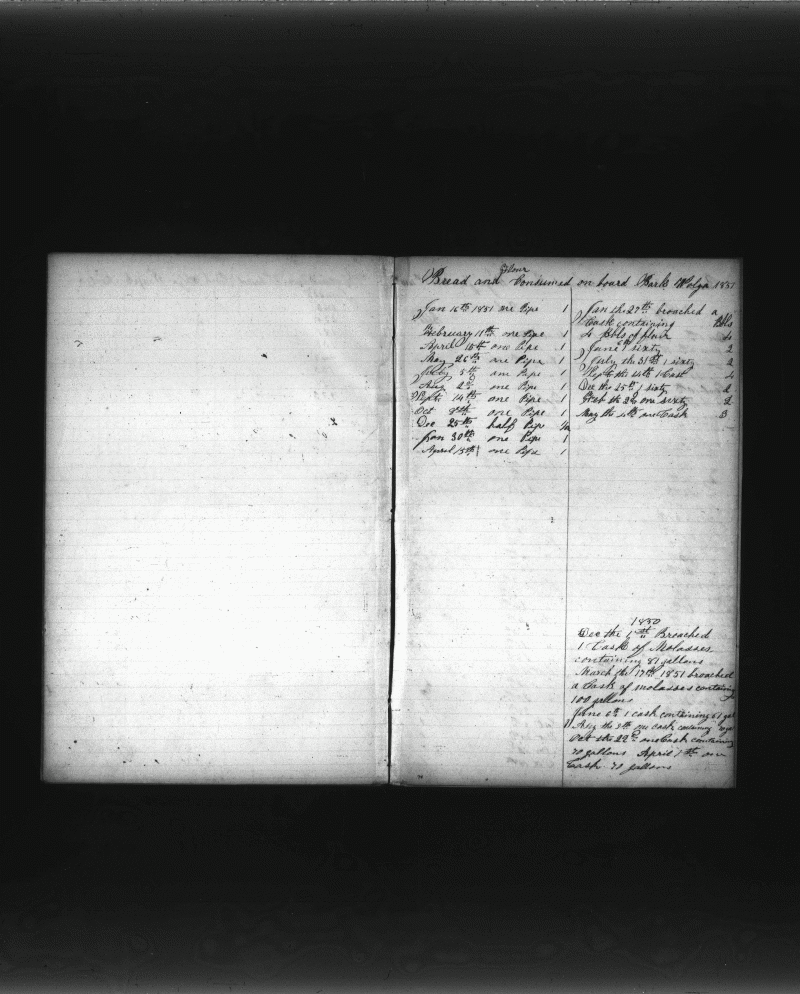 flour
Bread and Consumed on board Bark Volga 1851
Jan 16th 1851 one Pipe 1
February 11th one Pipe 1
April 18th one Pipe 1
May 26th one Pipe 1
July 5th one Pipe 1
Aug 2d one Pipe 1
Sept 14th one Pipe 1
Oct 8th one Pipe 1
Dec 25th half Pipe 1/2
Jan 30th one Pipe 1
April 15th one Pipe 1
Jan the 27th broached a
Cask containing Bbls
4 bbls of flour 4
June 6th 1 sixty 2
July the 31st 1 sixty 2
Sept the 14th 1 Cask 4
Dec the 25th 1 sixty 2
Feb the 2d one sixty 2
May the 4th one Cask 3
1850
Dec the 1st Broached
1 Cask of Molasses
containing 87 gallons
March the 17th 1851 broached
a Cask of molasses containing
100 gallons
June 6th 1 cask containing 61 gal
Aug the 9th one cask containing
Oct the 22d one Cask containing
70 gallons April 1st one
Cask 70 gallons